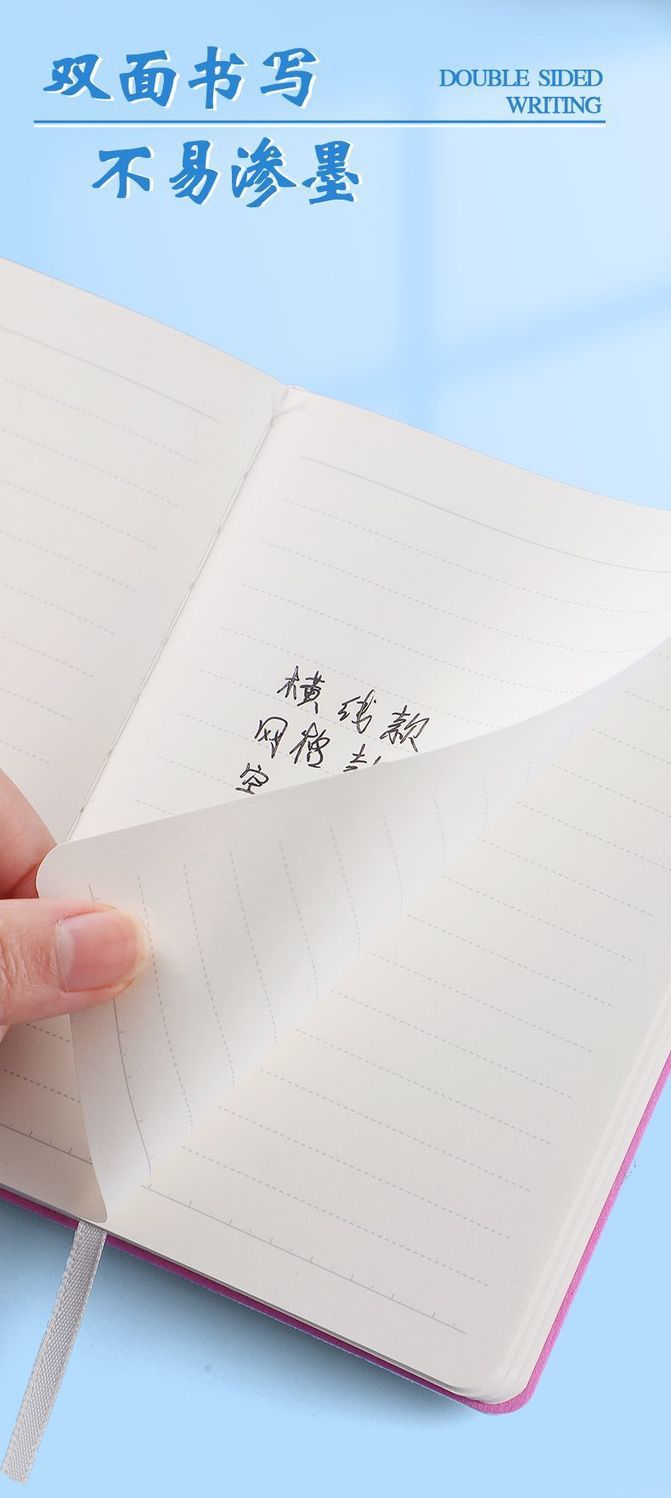 双面书写
DOUBLE SIDED
WRITING
不易渗墨
横线款
网格
空